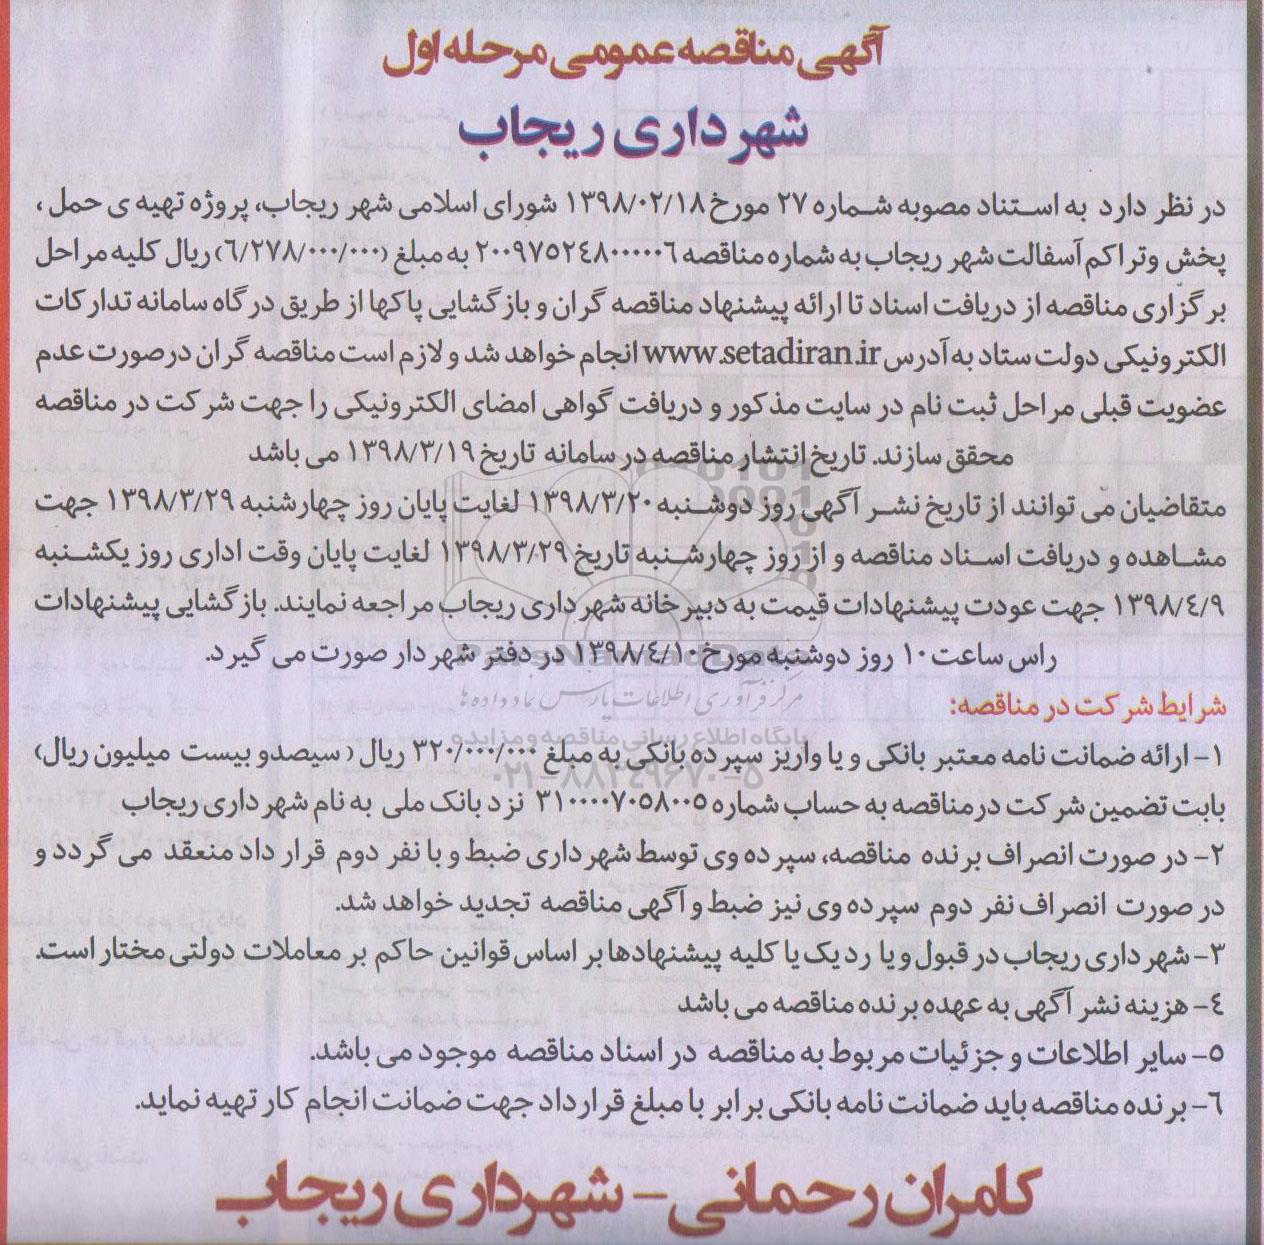 آگهی مناقصه عمومی مرحله اول
شهرداری ریجاب
در نظر دارد به استناد مصوبه شماره ۲۷ مورخ ۱۳۹۸/۰۲/۱۸ شورای اسلامی شهر ریجاب، پروژه تهیه ی حمل ،
پخش وتراکم آسفالت شهر ریجاب به شماره مناقصه ۲۰۰۹۷۵۲۴۸۰۰۰۰۰۶ به مبلغ (۶/۲۷۸/۰۰۰/۰۰۰) ریال کلیه مراحل
برگزاری مناقصه از دریافت اسناد تا ارائه پیشنهاد مناقصه گران و بازگشایی پاکها از طریق درگاه سامانه تدارکات
الکترونیکی دولت ستاد به آدرس www.setadiran.ir انجام خواهد شد و لازم است مناقصه گران درصورت عدم
عضویت قبلی مراحل ثبت نام در سایت مذکور و دریافت گواهی امضای الکترونیکی را جهت شرکت در مناقصه
محقق سازند. تاریخ انتشار مناقصه در سامانه تاریخ ۱۳۹۸/۳/۱۹ می باشد
متقاضیان می توانند از تاریخ نشر آگهی روز دوشنبه ۱۳۹۸/۳/۲۰ لغایت پایان روز چهارشنبه ۱۳۹۸/۳/۲۹ جهت
مشاهده و دریافت اسناد مناقصه و از روز چهارشنبه تاریخ ۱۳۹۸/۳/۲۹ لغایت پایان وقت اداری روز یکشنبه
۱۳۹۸/۴/۹ جهت عودت پیشنهادات قیمت به دبیرخانه شهرداری ریجاب مراجعه نمایند. بازگشایی پیشنهادات
راس ساعت ۱۰ روز دوشنبه مورخ ۱۳۹۸/۴/۱۰ در دفتر شهردار صورت می گیرد.
ParsNamadData
مرکز فرآوری اطلاعات پارس نماد داده ها
شرایط شرکت در مناقصه:
پایگاه اطلاع رسانی مناقصه و مزایده
۱- ارائه ضمانت نامه معتبر بانکی و یا واریز سپرده بانکی به مبلغ ۳۲۰/۰۰۰/۰۰۰ ریال (سیصدو بیست میلیون ریال)
۰۲۱-۸۸۳۴۹۶۷۰-۵
بابت تضمین شرکت درمناقصه به حساب شماره ۳۱۰۰۰۰۷۰۵۸۰۰۵ نزد بانک ملی به نام شهرداری ریجاب
۲- در صورت انصراف برنده مناقصه، سپرده وی توسط شهرداری ضبط و با نفر دوم قرار داد منعقد می گردد و
در صورت انصراف نفر دوم سپرده وی نیز ضبط و آگهی مناقصه تجدید خواهد شد.
۳- شهرداری ریجاب در قبول و یا رد یک یا کلیه پیشنهادها بر اساس قوانین حاکم بر معاملات دولتی مختار است.
۴- هزینه نشر آگهی به عهده برنده مناقصه می باشد
۵- سایر اطلاعات و جزئیات مربوط به مناقصه در اسناد مناقصه موجود می باشد.
۶- برنده مناقصه باید ضمانت نامه بانکی برابر با مبلغ قرارداد جهت ضمانت انجام کار تهیه نماید.
کامران رحمانی - شهرداری ریجاب